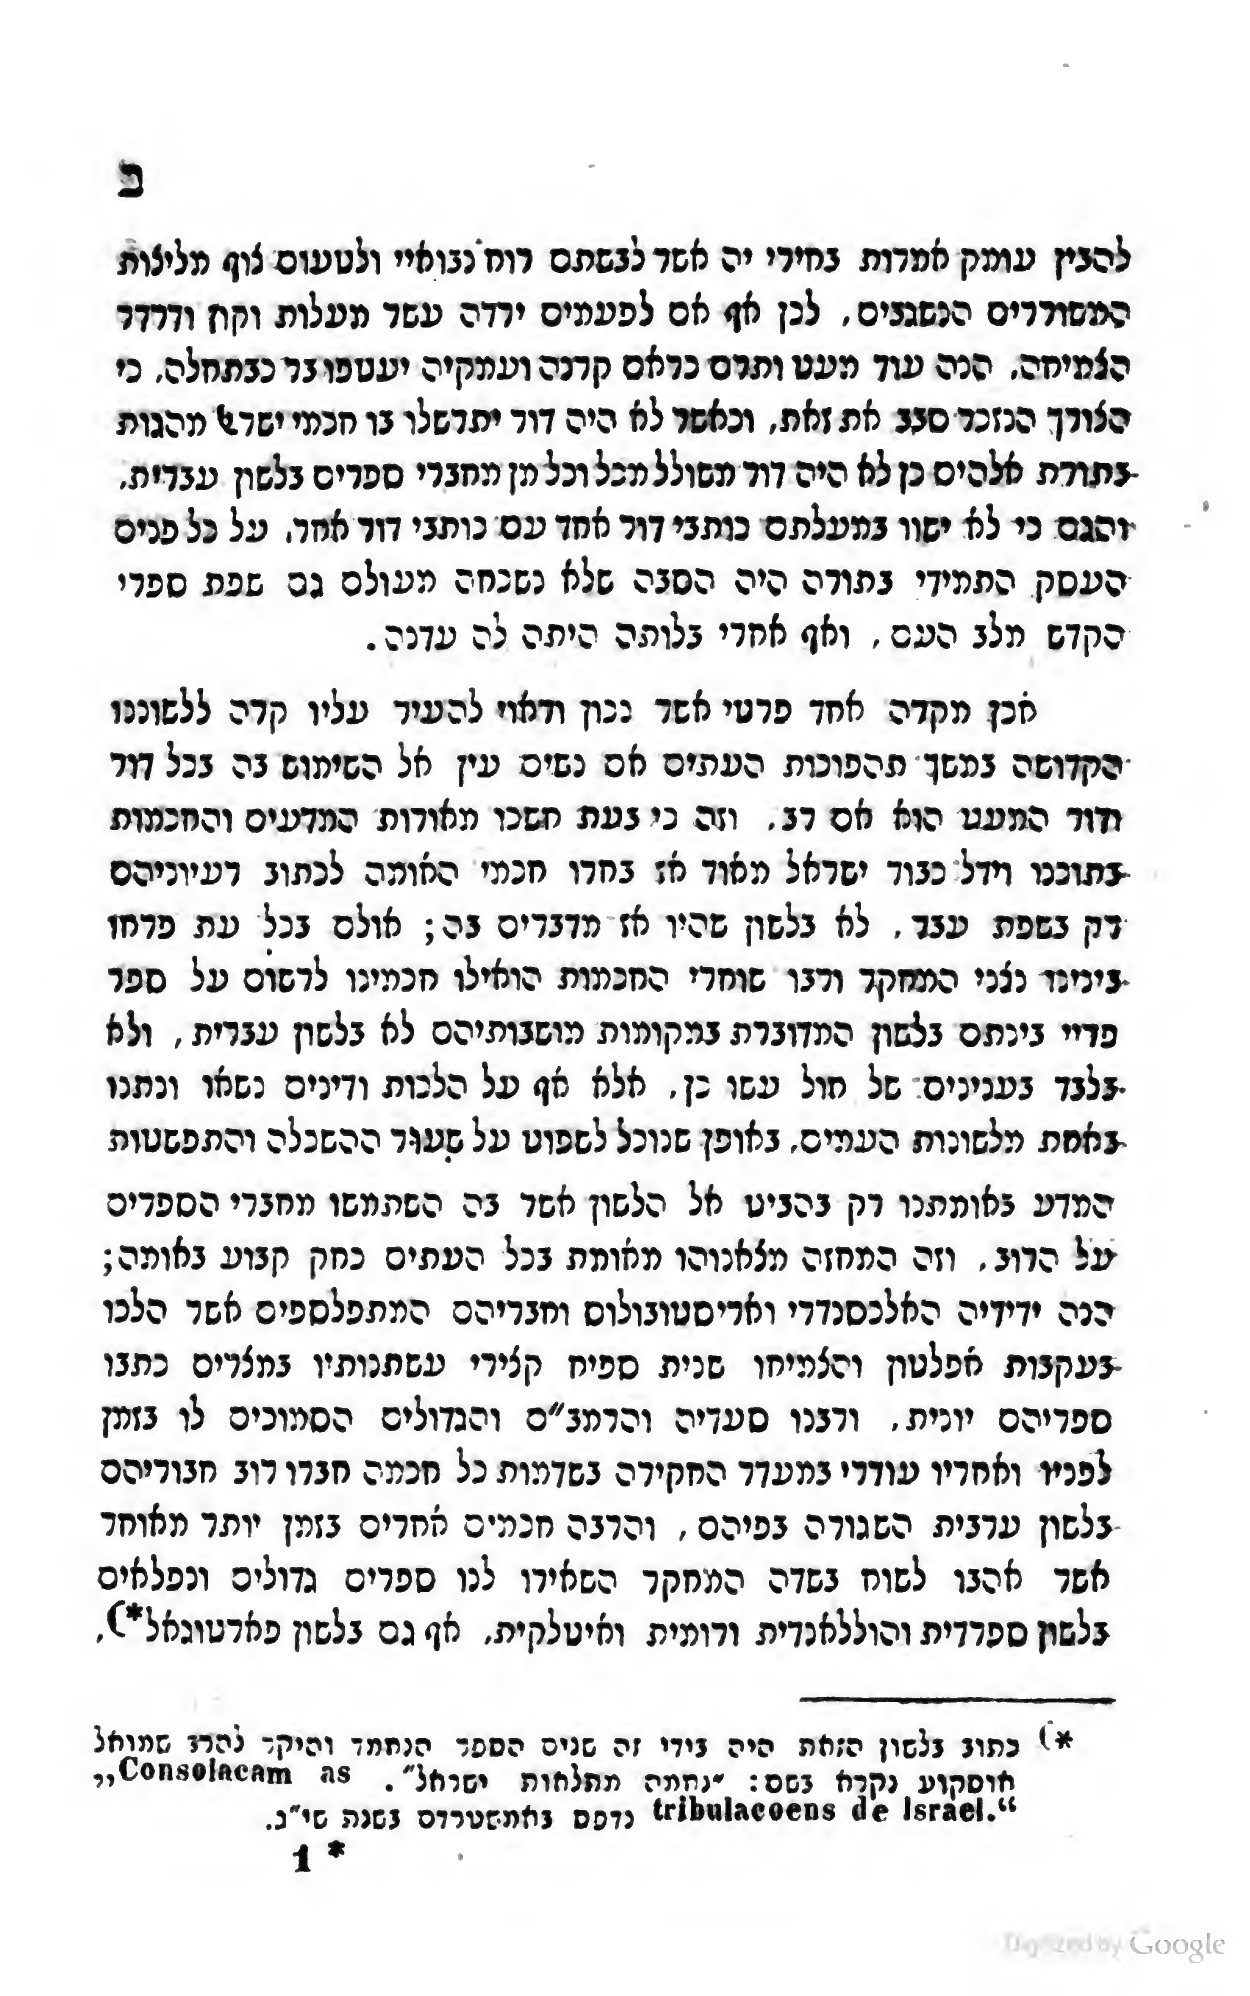 ב
להבין עומק אמרות בחירי יה אשר לבשתם רוח נבואיי ולטעום צוף מליצות
המשוררים הנשגבים, לכן אף אם לפעמים ירדה עשר מעלות וקוץ ודרדר
הצמיחה, הנה עוד מעט ותרם כראם קרנה ועמקיה יעטפו בר כבתחלה, כי
הצורך הנזכר סבב את זאת, וכאשר לא היה דור יתרשלו בו חכמי ישראל מהגות
בתורת אלהים כן לא היה דור משולל מכל וכל מן מחברי ספרים בלשון עברית,
והגם כי לא ישוו במעלתם כותבי דור אחד עם כותבי דור אחר, על כל פנים
העסק התמידי בתורה היה הסבה שלא נשכחה מעולם גם שפת ספרי
הקדש מלב העם, ואף אחרי בלותה היתה לה עדנה.
אכן מקרה אחד פרטי אשר נכון וראוי להעיר עליו קרה ללשוננו
הקדושה במשך תהפוכות העתים אם נשים עין אל השימוש בה בכל דור
ודור המעט הוא אם רב, וזה כי בעת חשכו מאורות המדעים והחכמות
בתוכנו וידל כבוד ישראל מאוד אז בחרו חכמי האומה לכתוב רעיוניהם
רק בשפת עבר, לא בלשון שהיו אז מדברים בה; אולם בכל עת פרחו
בינינו נצני המחקר ורבו שוחרי החכמות הואילו חכמינו לרשום על ספר
פריי בינתם בלשון המדוברת במקומות מושבותיהם לא בלשון עברית, ולא
בלבד בענינים של חול עשו כן, אלא אף על הלכות ודינים נשאו ונתנו
באחת מלשונות העמים, באופן שנוכל לשפוט על שעור ההשכלה והתפשטות
המדע באומתנו רק בהביט אל הלשון אשר בה השתמשו מחברי הספרים
על הרוב, וזה המחזה מצאנוהו מאומת בכל העתים כחק קבוע באומה;
הנה ידידיה האלכסנדרי ואריסטובולוס וחבריהם המתפלספים אשר הלכו
בעקבות אפלטון והצמיחו שנית ספיח קצירי עשתנותיו במצרים כתבו
ספריהם יונית, ורבנו סעדיה והרמב"ם והגדולים הסמוכים לו בזמן
לפניו ואחריו עודרי במעדר החקירה בשדמות כל חכמה חברו רוב חבוריהם
בלשון ערבית השגורה בפיהם, והרבה חכמים אחרים בזמן יותר מאוחר
אשר אהבו לשוח בשדה המחקר השאירו לנו ספרים גדולים ונפלאים
בלשון ספרדית והוללאנדית ורומית ואיטלקית, אף גם בלשון פארטוגאל*),
*) כתוב בלשון הזאת היה בידי זה שנים הספר הנחמד והיקר להרב שמואל
אוסקוע נקרא בשם: "נחמה מתלאות ישראל". „Consolacam as
tribulacoens de Israel.“ נדפס באמשטרדם בשנת שי"ג.
1 *
Digitized by Google